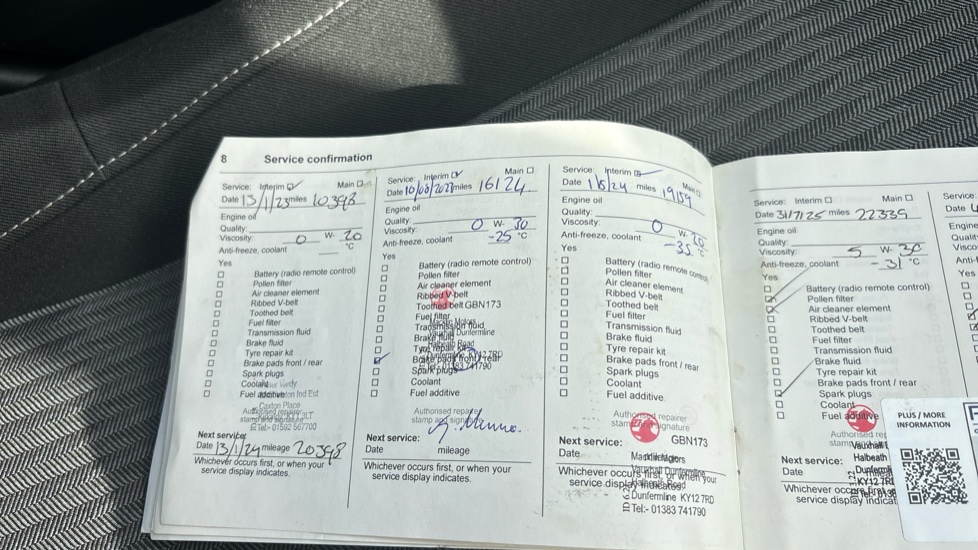 8 Service confirmation
Service: Interim Main
Date 13/1/23 miles 10398
Engine oil
Quality:
Viscosity: 0 W- 20
Anti-freeze, coolant °C
Yes
Battery (radio remote control)
Pollen filter
Air cleaner element
Ribbed V-belt
Toothed belt
Fuel filter
Transmission fluid
Brake fluid
Tyre repair kit
Brake pads front / rear
Spark plugs
Coolant
Fuel additive
Authorised repairer
stamp and signature
Next service:
Date 13/1/24 mileage 20398
Whichever occurs first, or when your
service display indicates.
Service: Interim Main
Date 10/08/2023 miles 16124
Engine oil
Quality:
Viscosity: 0 W- 30
Anti-freeze, coolant -25 °C
Yes
Battery (radio remote control)
Pollen filter
Air cleaner element
Ribbed V-belt
Toothed belt GBN173
Fuel filter
Transmission fluid
Brake fluid
Tyre repair kit
Brake pads front / rear
Spark plugs
Coolant
Fuel additive
Authorised repairer
stamp and signature
Next service:
Date mileage
Whichever occurs first, or when your
service display indicates.
Service: Interim Main
Date 1/5/24 miles 19159
Engine oil
Quality:
Viscosity: 0 W- 20
Anti-freeze, coolant -35 °C
Yes
Battery (radio remote control)
Pollen filter
Air cleaner element
Ribbed V-belt
Toothed belt
Fuel filter
Transmission fluid
Brake fluid
Tyre repair kit
Brake pads front / rear
Spark plugs
Coolant
Fuel additive
Authorised repairer
stamp and signature
GBN173
Next service:
Date
Whichever occurs first, or when your
service display indicates.
Dunfermline KY12 7RD
Tel:- 01383 741790
Service: Interim Main
Date 31/7/25 miles 22339
Engine oil
Quality:
Viscosity: 5 W- 30
Anti-freeze, coolant -31 °C
Yes
Battery (radio remote control)
Pollen filter
Air cleaner element
Ribbed V-belt
Toothed belt
Fuel filter
Transmission fluid
Brake fluid
Tyre repair kit
Brake pads front / rear
Spark plugs
Coolant
Fuel additive
Authorised rep
stamp
Vauxhall
Next service: Halbeath
Date Dunfermli
KY12 7R
Whichever occurs first
service display indicat
PLUS / MORE
INFORMATION
Service
Date
Engine
Qualit
Visco
Anti-f
Yes